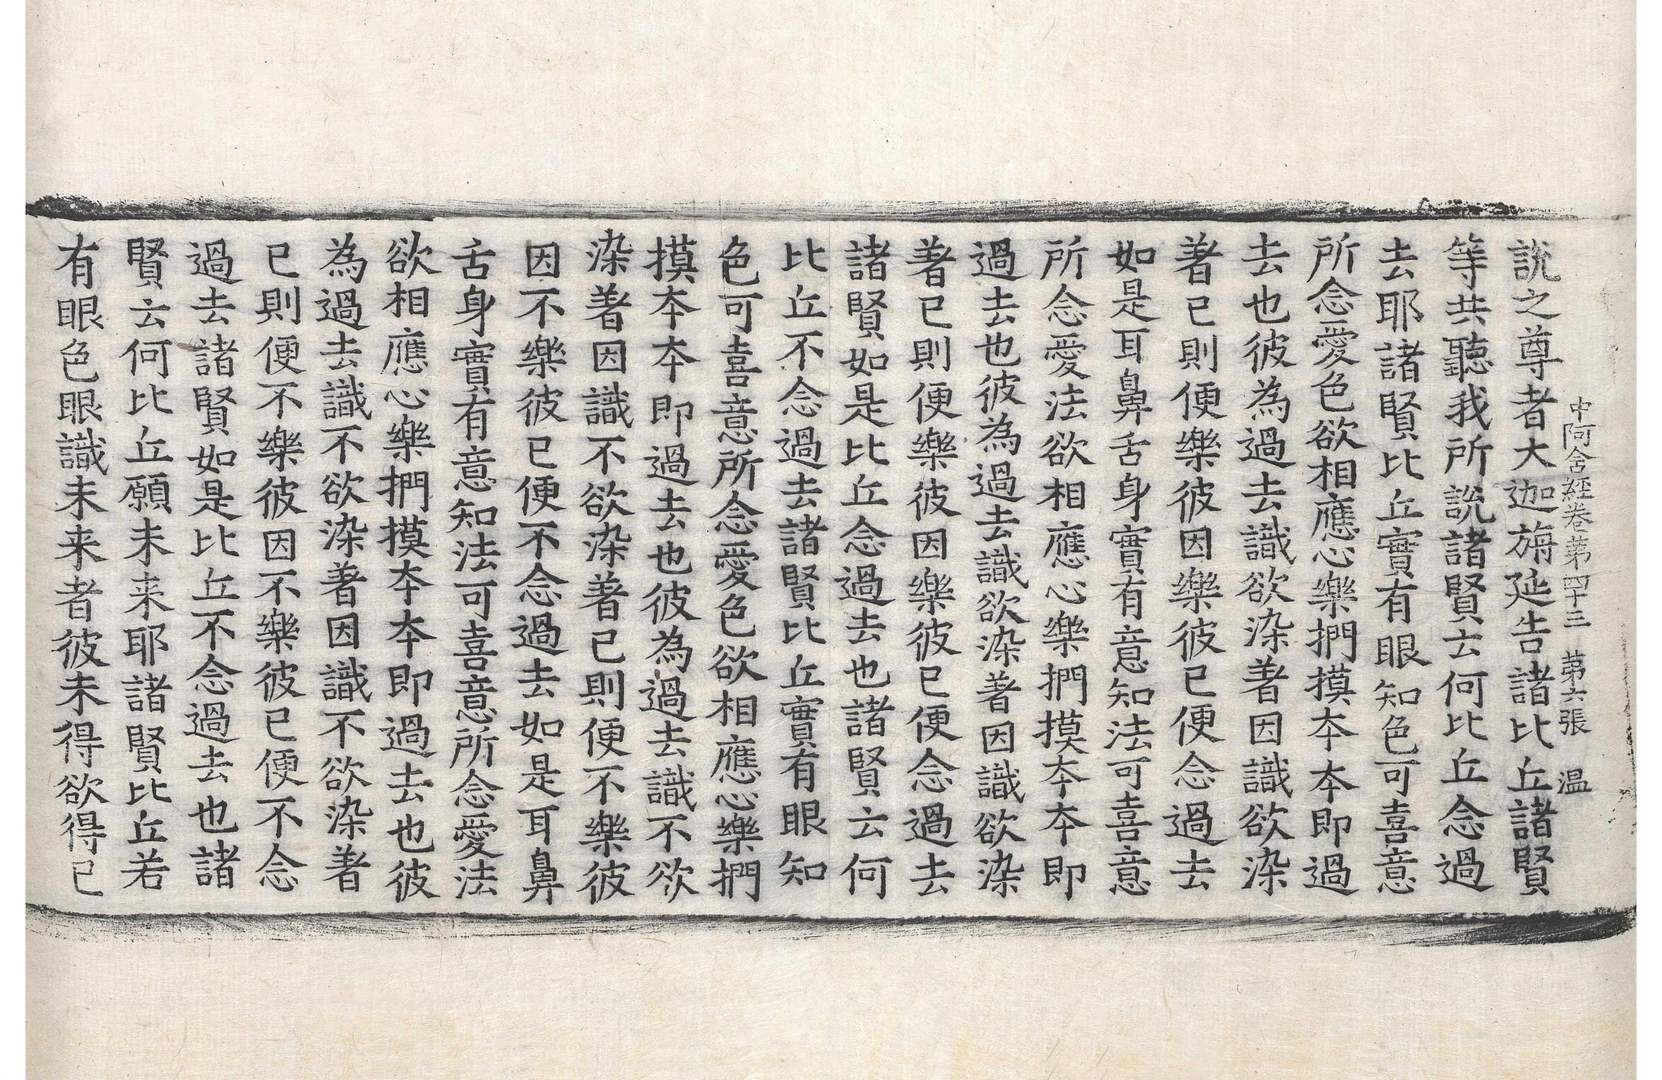 中阿含經卷第四十三 第六張 溫
說之尊者大迦旃延告諸比丘諸賢
等共聽我所說諸賢云何比丘念過
去耶諸賢比丘實有眼知色可喜意
所念愛色欲相應心樂捫摸本本即過
去也彼為過去識欲染著因識欲染
著已則便樂彼因樂彼已便念過去
如是耳鼻舌身實有意知法可喜意
所念愛法欲相應心樂捫摸本本即
過去也彼為過去識欲染著因識欲染
著已則便樂彼因樂彼已便念過去
諸賢如是比丘念過去也諸賢云何
比丘不念過去諸賢比丘實有眼知
色可喜意所念愛色欲相應心樂捫
摸本本即過去也彼為過去識不欲
染著因識不欲染著已則便不樂彼
因不樂彼已便不念過去如是耳鼻
舌身實有意知法可喜意所念愛法
欲相應心樂捫摸本本即過去也彼
為過去識不欲染著因識不欲染著
已則便不樂彼因不樂彼已便不念
過去諸賢如是比丘不念過去也諸
賢云何比丘願未来耶諸賢比丘若
有眼色眼識未来者彼未得欲得已